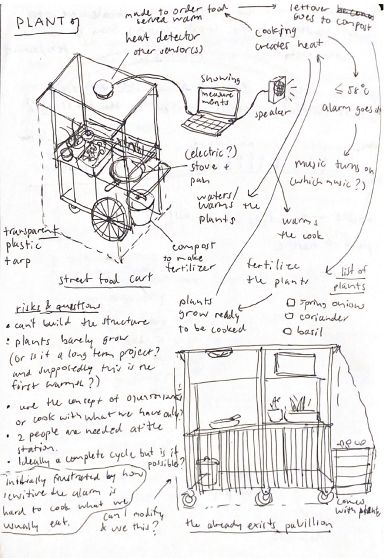 PLANT
made to order food
served warm
leftover
goes to compost
heat detector
other sensor(s)
cooking
creates heat
showing
measure
ments
speaker
≤ 58°C
alarm goes
music turns on
(which music?)
(electric?)
stove +
pan
waters/
warms the
plants
warms
the cook
transparent
plastic
tarp
compost
to make
fertilizer
street food cart
fertilize
the plants
list of
plants
spring onion
coriander
basil
plants
grow ready
to be cooked
risks & questions
• can't build the structure
• plants barely grow
(or is it a long term project?
and supposedly this is the
first warmth?)
• use the concept of
or cook with what we have only?
• 2 people are needed at the
station.
• Ideally a complete cycle but is it
possible?
initially frustrated by how
sensitive the alarm is
hard to cook what we
usually eat.
can I modify
& use this?
the already exists pavillion
comes
with plants